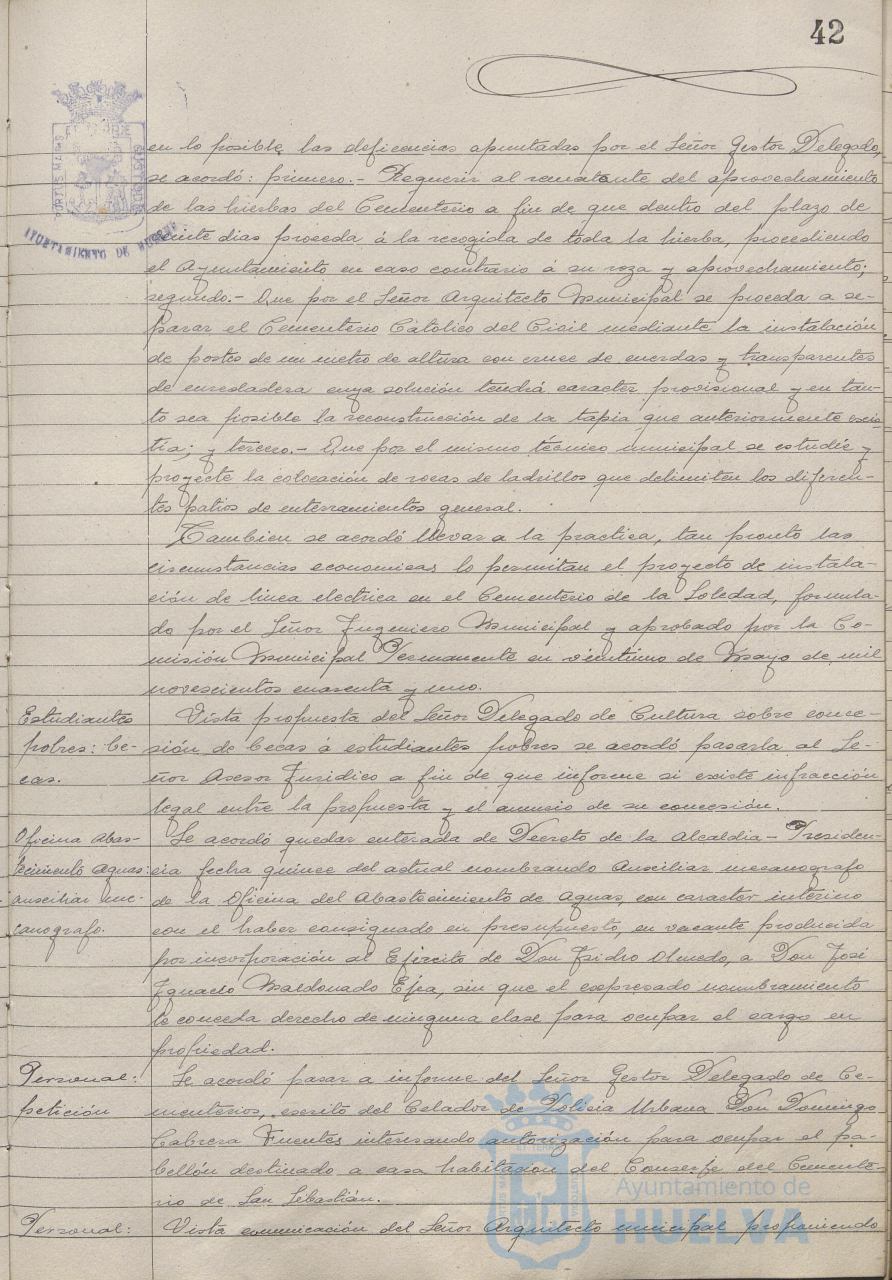 42
en lo posible las deficencias apuntadas por el Señor Gestor Delegado,
se acordó: primero.- Requerir al rematante del aprovechamiento
de las hierbas del Cementerio a fin de que dentro del plazo de
veinte dias proceda á la recogida de toda la hierba, procediendo
el Ayuntamiento en caso contrario á su roza y aprovechamiento;
segundo.- Que por el Señor Arquitecto Municipal se proceda a se-
parar el Cementerio Católico del Civil mediante la instalación
de postes de un metro de altura con cruce de cuerdas y transparentes
de enredadera cuya solución tendrá caracter provisional y en tan-
to sea posible la reconstrucción de la tapia que anteriormente exis-
tia; y tercero.- Que por el mismo técnico municipal se estudie y
proyecte la colocación de rocas de ladrillos que delimiten los diferen-
tes patios de enterramientos general.
Tambien se acordó llevar a la practica, tan pronto las
circunstancias economicas lo permitan el proyecto de instala-
ción de linea electrica en el Cementerio de la Soledad, formula-
do por el Señor Ingeniero Municipal y aprobado por la Co-
misión Municipal Permanente en veintiuno de Mayo de mil
novescientos cuarenta y uno.
Estudiantes
pobres: be-
cas.
Vista propuesta del Señor Delegado de Cultura sobre conce-
sión de becas á estudiantes pobres se acordó pasarla al Se-
ñor Asesor Juridico a fin de que informe si existe infracción
legal entre la propuesta y el anuncio de su concesión.
Oficina Abas-
tecimiento Aguas:
auxiliar me-
canografo.
Se acordó quedar enterada de Decreto de la Alcaldia - Presiden-
cia fecha quince del actual nombrando Auxiliar mecanografo
de la Oficina del Abastecimiento de Aguas, con caracter interino
con el haber consignado en presupuesto, en vacante producida
por incorporación al Ejército de Don Isidro Olmedo, a Don José
Ignacio Maldonado Ejea, sin que el expresado nombramiento
le conceda derecho de ninguna clase para ocupar el cargo en
propiedad.
Personal:
petición
Se acordó pasar a informe del Señor Gestor Delegado de Ce-
menterios, escrito del Celador de Policia Urbana Don Domingo
Cabrera Fuentes interesando autorización para ocupar el pa-
bellón destinado a casa habitacion del Conserje del Cemente-
rio de San Sebastián.
Personal:
Vista comunicación del Señor Arquitecto municipal proponiendo
AYUNTAMIENTO DE HUELVA
PORTUS MARIS
ET TERRE
CUSTODIA
Ayuntamiento de
HUELVA